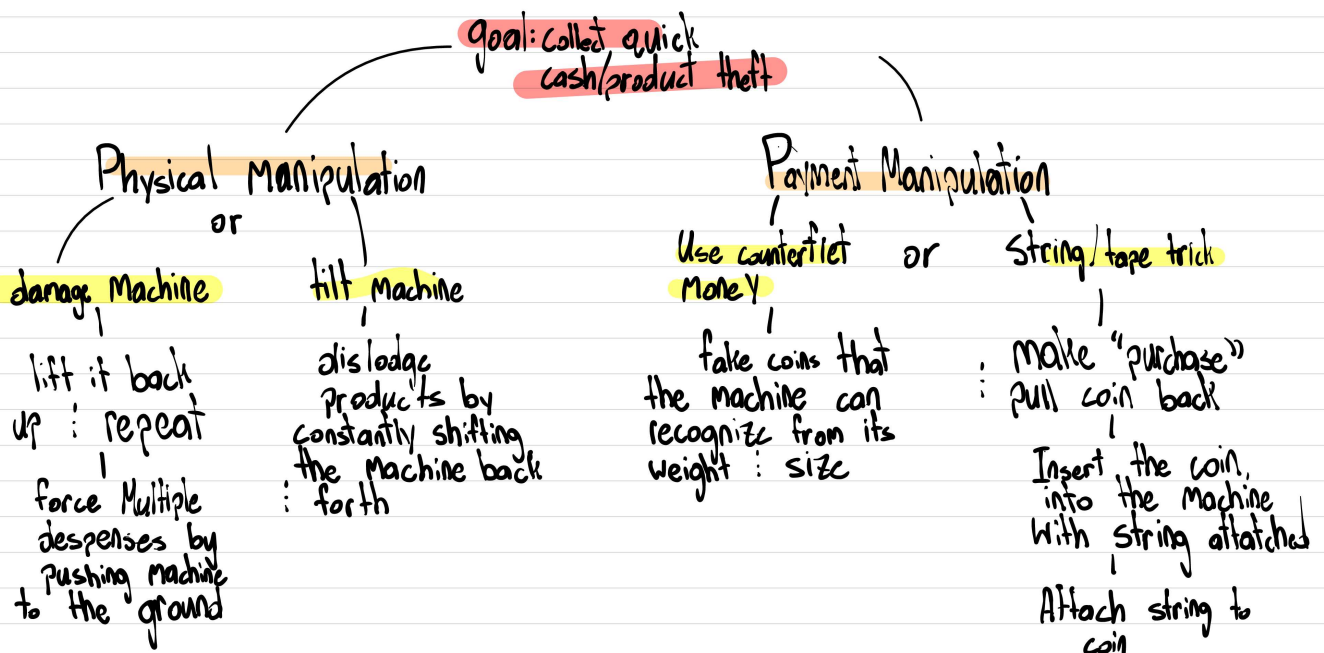 goal: collect quick
cash/product theft
Physical Manipulation
or
damage Machine
tilt Machine
lift it back
up : repeat
force Multiple
despenses by
pushing machine
to the ground
dislodge
products by
constantly shifting
the Machine back
: forth
Payment Manipulation
Use counterfiet
Money
or
String/tape trick
fake coins that
the machine can
recognize from its
weight : size
make "purchase"
: pull coin back
Insert the coin,
into the machine
with string attatched
Attach string to
coin